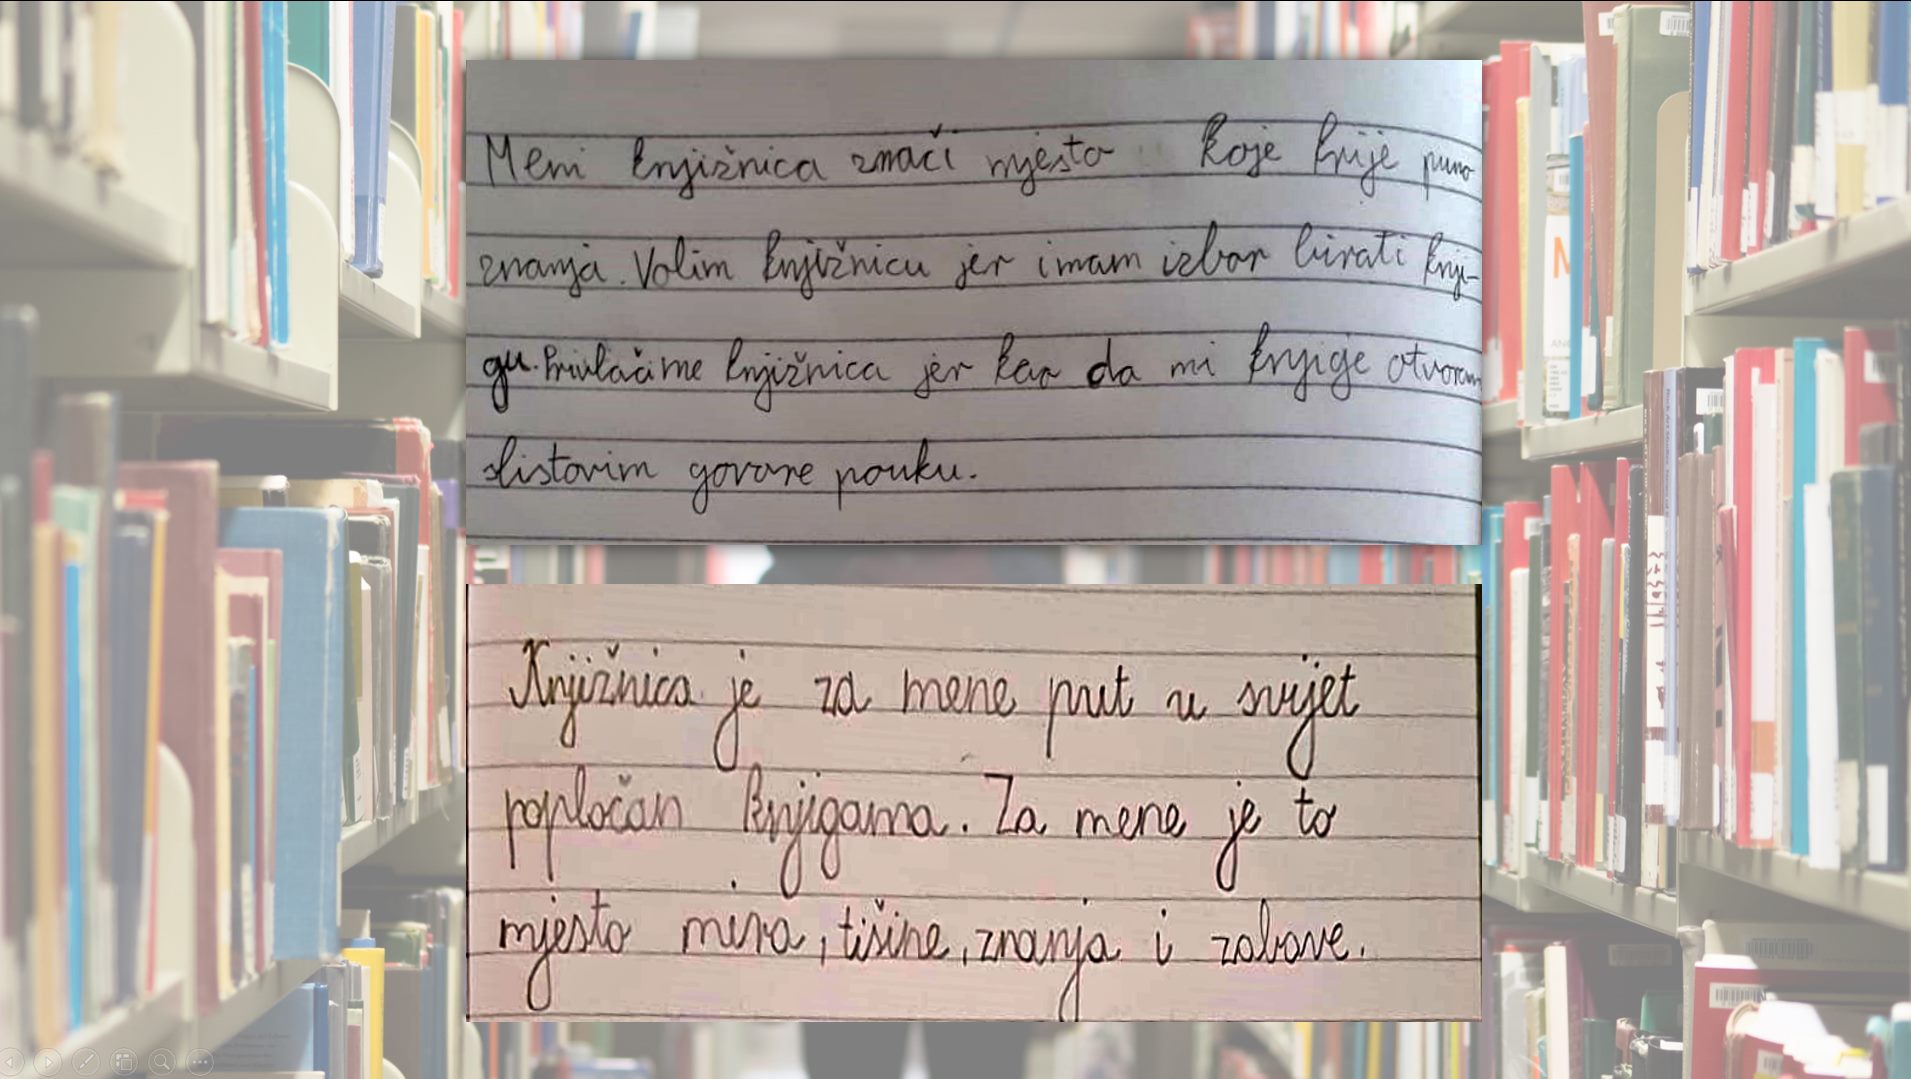 Meni knjižnica znači mjesto koje krije puno
znanja. Volim knjižnicu jer imam izbor birati knji-
gu. Privlači me knjižnica jer kao da mi knjige otvoram
listovim govore pouku.
Knjižnica je za mene put u svijet
popločan knjigama. Za mene je to
mjesto mira, tišine, znanja i zabave.